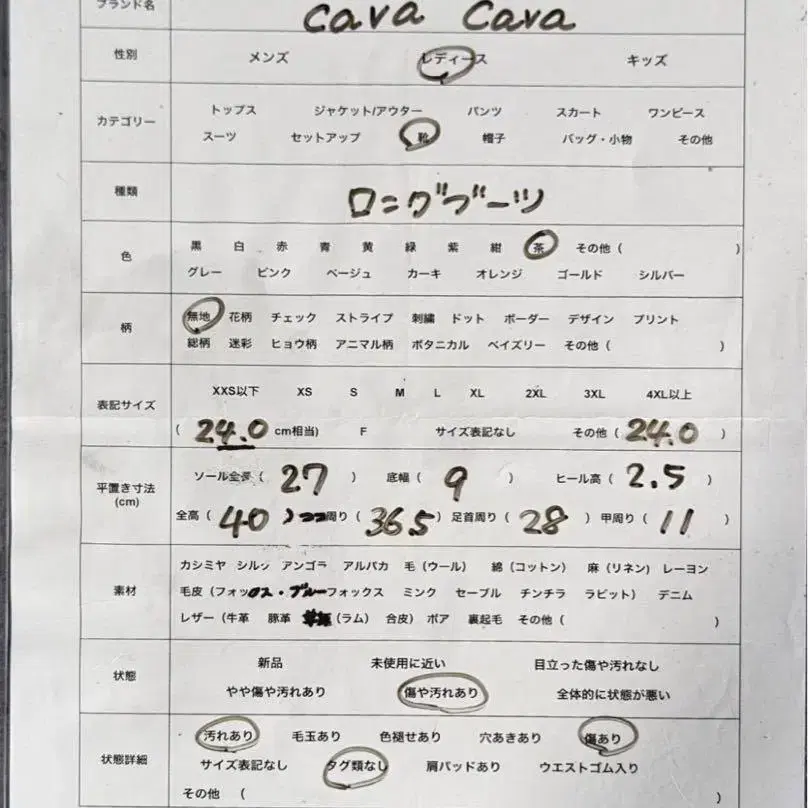 ブランド名 cava cava
性別 メンズ レディース キッズ
カテゴリー トップス ジャケット/アウター パンツ スカート ワンピース
スーツ セットアップ 靴 帽子 バッグ・小物 その他
種類 ロングブーツ
色 黒 白 赤 青 黄 緑 紫 紺 茶 その他 ( )
グレー ピンク ベージュ カーキ オレンジ ゴールド シルバー
柄 無地 花柄 チェック ストライプ 刺繍 ドット ボーダー デザイン プリント
総柄 迷彩 ヒョウ柄 アニマル柄 ボタニカル ペイズリー その他 ( )
表記サイズ XXS以下 XS S M L XL 2XL 3XL 4XL以上
( 24.0 cm相当) F サイズ表記なし その他 ( 24.0 )
平置き寸法 (cm) ソール全長 ( 27 ) 底幅 ( 9 ) ヒール高 ( 2.5 )
全高 ( 40 ) 周り ( 36.5 ) 足首周り ( 28 ) 甲周り ( 11 )
素材 カシミヤ シルク アンゴラ アルパカ 毛 (ウール) 綿 (コットン) 麻 (リネン) レーヨン
毛皮 (フォックス・ブルーフォックス ミンク セーブル チンチラ ラビット) デニム
レザー (牛革 豚革 (ラム) 合皮) ボア 裏起毛 その他 ( )
状態 新品 未使用に近い 目立った傷や汚れなし
やや傷や汚れあり 傷や汚れあり 全体的に状態が悪い
状態詳細 汚れあり 毛玉あり 色褪せあり 穴あきあり 傷あり
サイズ表記なし タグ類なし 肩パッドあり ウエストゴム入り
その他 ( )